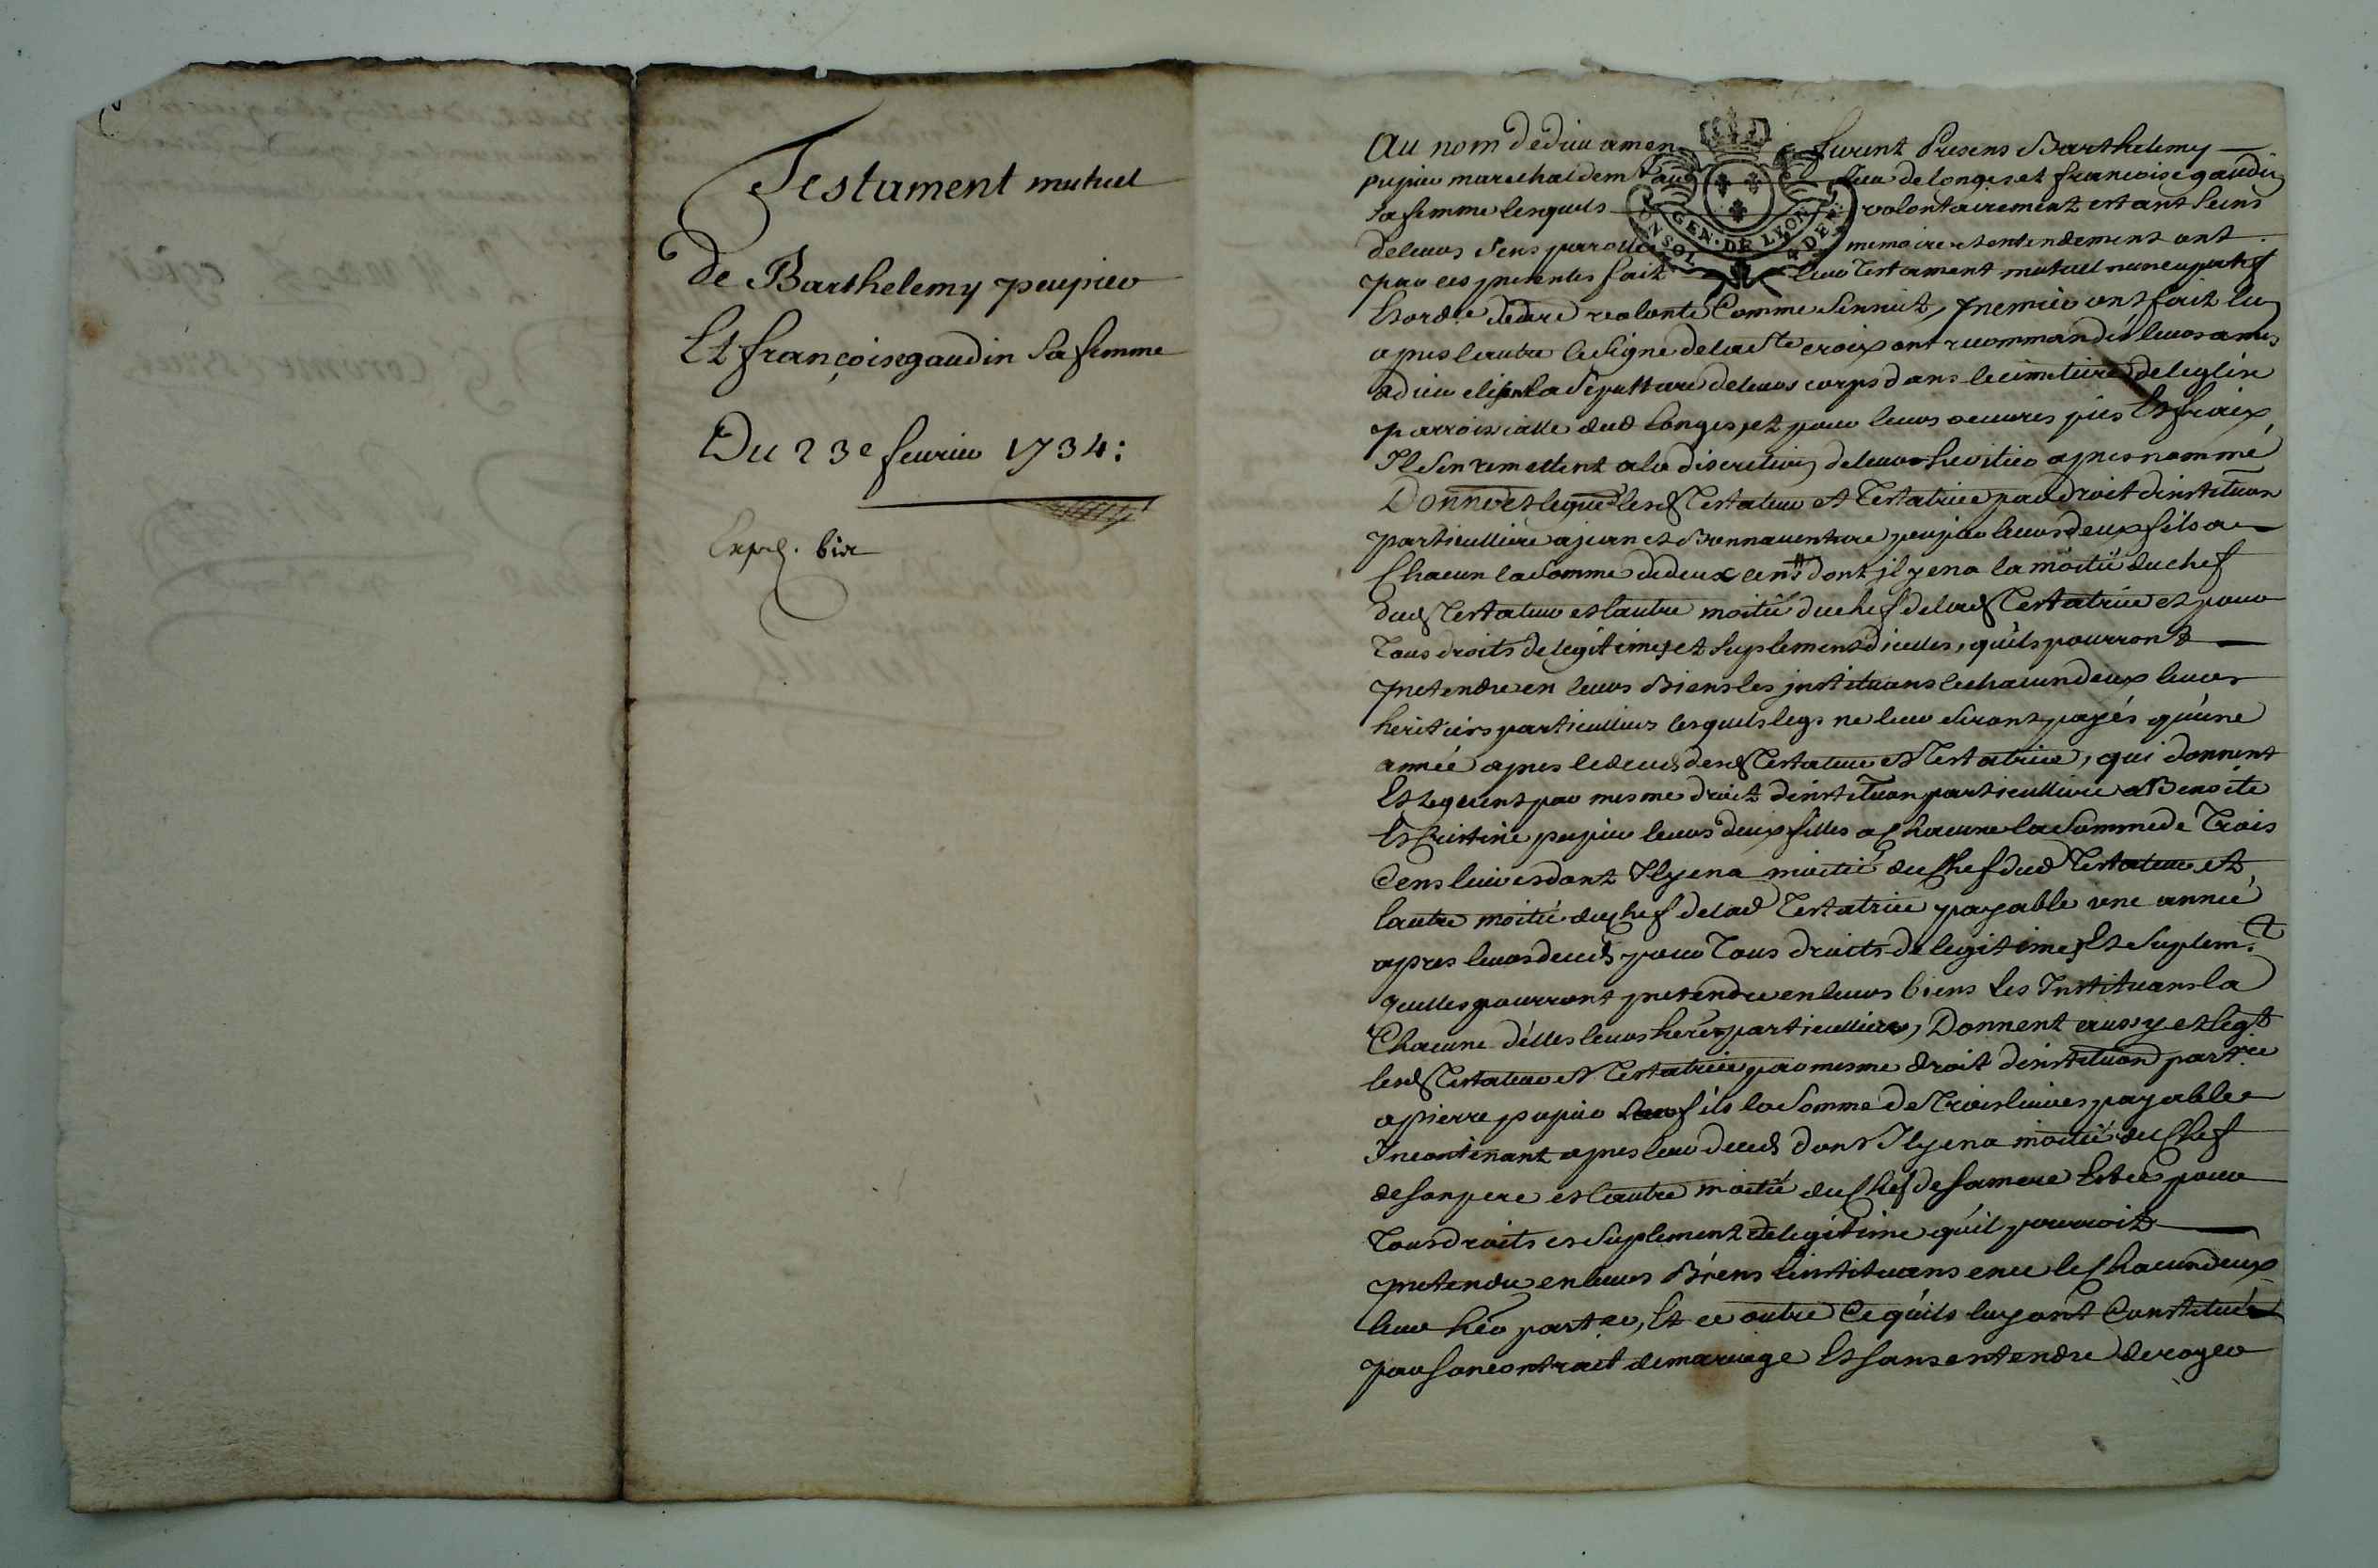 Testament mutuel
de Barthelemy peupier
Et françoise gaudin Sa femme
Du 23e feurier 1734:
Exped. bis
GEN. DE LYON
Au nom de dieu amen furent Presens Barthelemy
pupier marechal demeurant au lieu de longes et francoise gaudin
Sa femme lesquels volontairement estant Seins
de leurs Sens parolle memoire et entendement ont
par ces presentes fait leur Testament mutuel nuncupatif
Et ordre de dre volonté Comme Sensuit, premier ont fait lun
apres lautre le Signe de la Ste croix ont recommandés leurs ames
a dieu elisent la Sepulture de leurs corps dans le cimetiere de leglise
parroissialle dud Longes, et pour leurs oeuures pies Et fraix,
Il Sen remettent a la discretion de leur heritier apres nommé
Donne et legue lesd Testateur et Testatrice par droit dinstituon
particulliere a jean et Bonnauenture peupier leurs deux fils a
Chacun la Somme de deux cens ₶ dont jl y en a la moitié du chef
dud Testateur et lautre moitié du chef de lad Testatrice et pour
Tous droits de legitimes et Suplement dicelles, quils pourront
pretendre en leurs Biens les jnstituans le chacun deux leurs
heritiers particulliers lesquels legs ne leur Seront payés qu'une
année apres le deceds desd Testateur et Testatrice, qui donnent
Et leguent par mesme droit dinstituon particulliere a Benoite
Et Cristine pupier leurs deux filles a Chacune la Somme de Trois
Cens liures dont Il y en a moitié du Chef dud Testateur et
lautre moitié du chef de lad Testatrice payable une année
apres leurs deceds pour Tous droits de legitimes Et Suplemt
quelles pourront pretendre en leurs biens les Instituans la
Chacune d'elles leurs heres particulliere, Donnent aussy et legt
lesd Testateur et Testatrice par mesme droit dinstituon partre
a pierre pupier leur fils la Somme de Trois liures payables
Incontinant apres leur deceds dont Il y en a moitié du Chef
de Son pere et lautre moitié du Chef de Sa mere Et ce pour
Tous droits et Suplement de legitime qu'il pourroit
pretendre en leurs Biens linstituans en ce le Chacun deux
leur her partre, Et ce outre Ce qu'ils luy ont Constitué
par Son contract de mariage Et Sans entendre deroger